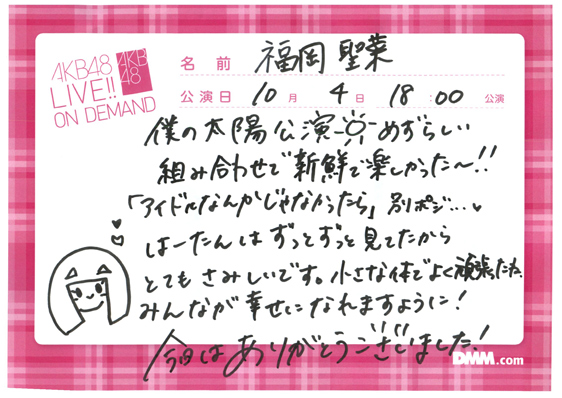 AKB48
LIVE!!
ON DEMAND
AKB
48
名前 福岡 聖菜
公演日 10月 4日 18:00 公演
僕の太陽公演 めずらしい
組み合わせで新鮮で楽しかった〜!!
「アイドルなんかじゃなかったら」別ポジ…
はーたんはずっとずっと見てたから
とてもさみしいです。小さな体でよく頑張ったね、
みんなが幸せになれますように!
今日はありがとうございました!
DMM.com